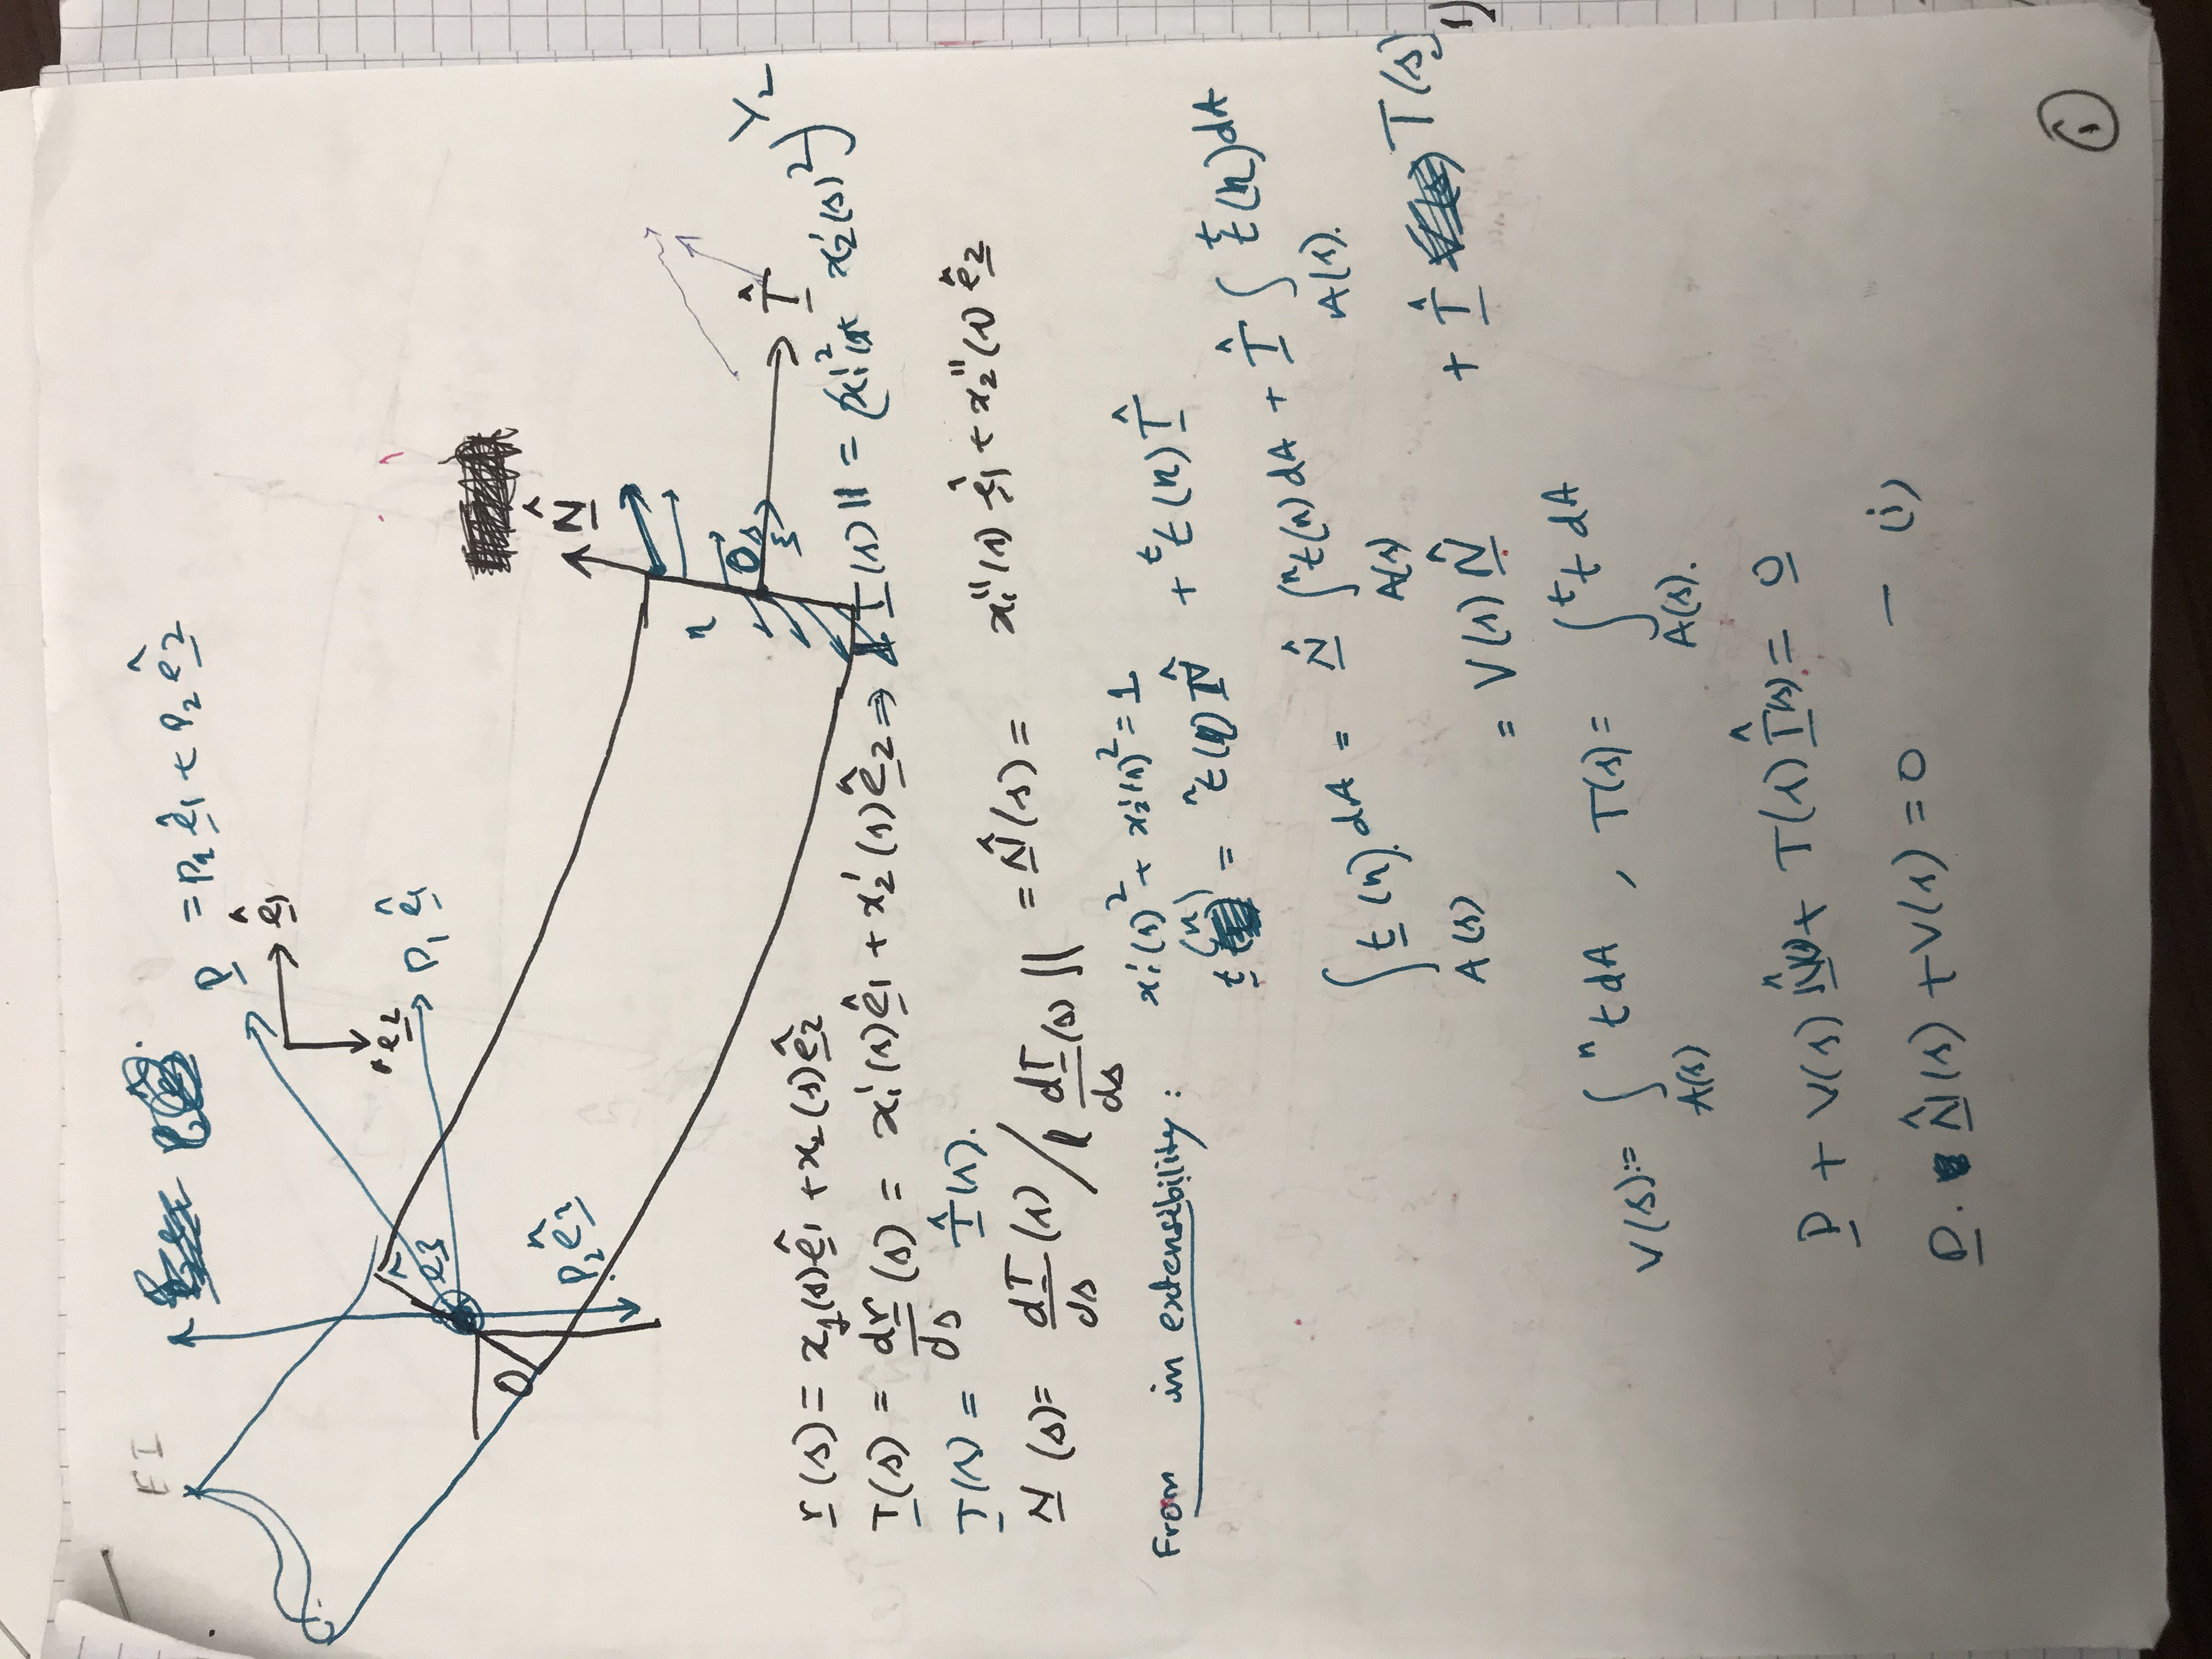 EI
P = P₁ ê₁ + P₂ ê₂
ê₁
e₂
ê₃
P₁ ê₁
O
P₂ ê₂
N̂
η
O
s
ξ
T̂
r(s) = x₁(s) ê₁ + x₂(s) ê₂
T(s) = dr/ds (s) = x₁'(s) ê₁ + x₂'(s) ê₂ ⇒ ‖T(s)‖ = (x₁'² + x₂'(s)²)^(1/2)
T(s) = T̂(s).
N(s) = dT/ds (s) / ‖dT/ds (s)‖ = N̂(s) = x₁''(s) ê₁ + x₂''(s) ê₂
From inextensibility : x₁'(s)² + x₂'(s)² = 1
t(n) = ⁿt(n) N̂ + ᵗt(n) T̂
∫_A(s) t(n) dA = N̂ ∫_A(s) ⁿt(n) dA + T̂ ∫_A(s). ᵗt(n) dA
= V(s) N̂ + T̂ T(s)
V(s) := ∫_A(s) ⁿt dA , T(s) = ∫_A(s). ᵗt dA
P + V(s) N̂(s) + T(s) T̂(s) = 0
P . N̂(s) + V(s) = 0 – (i)